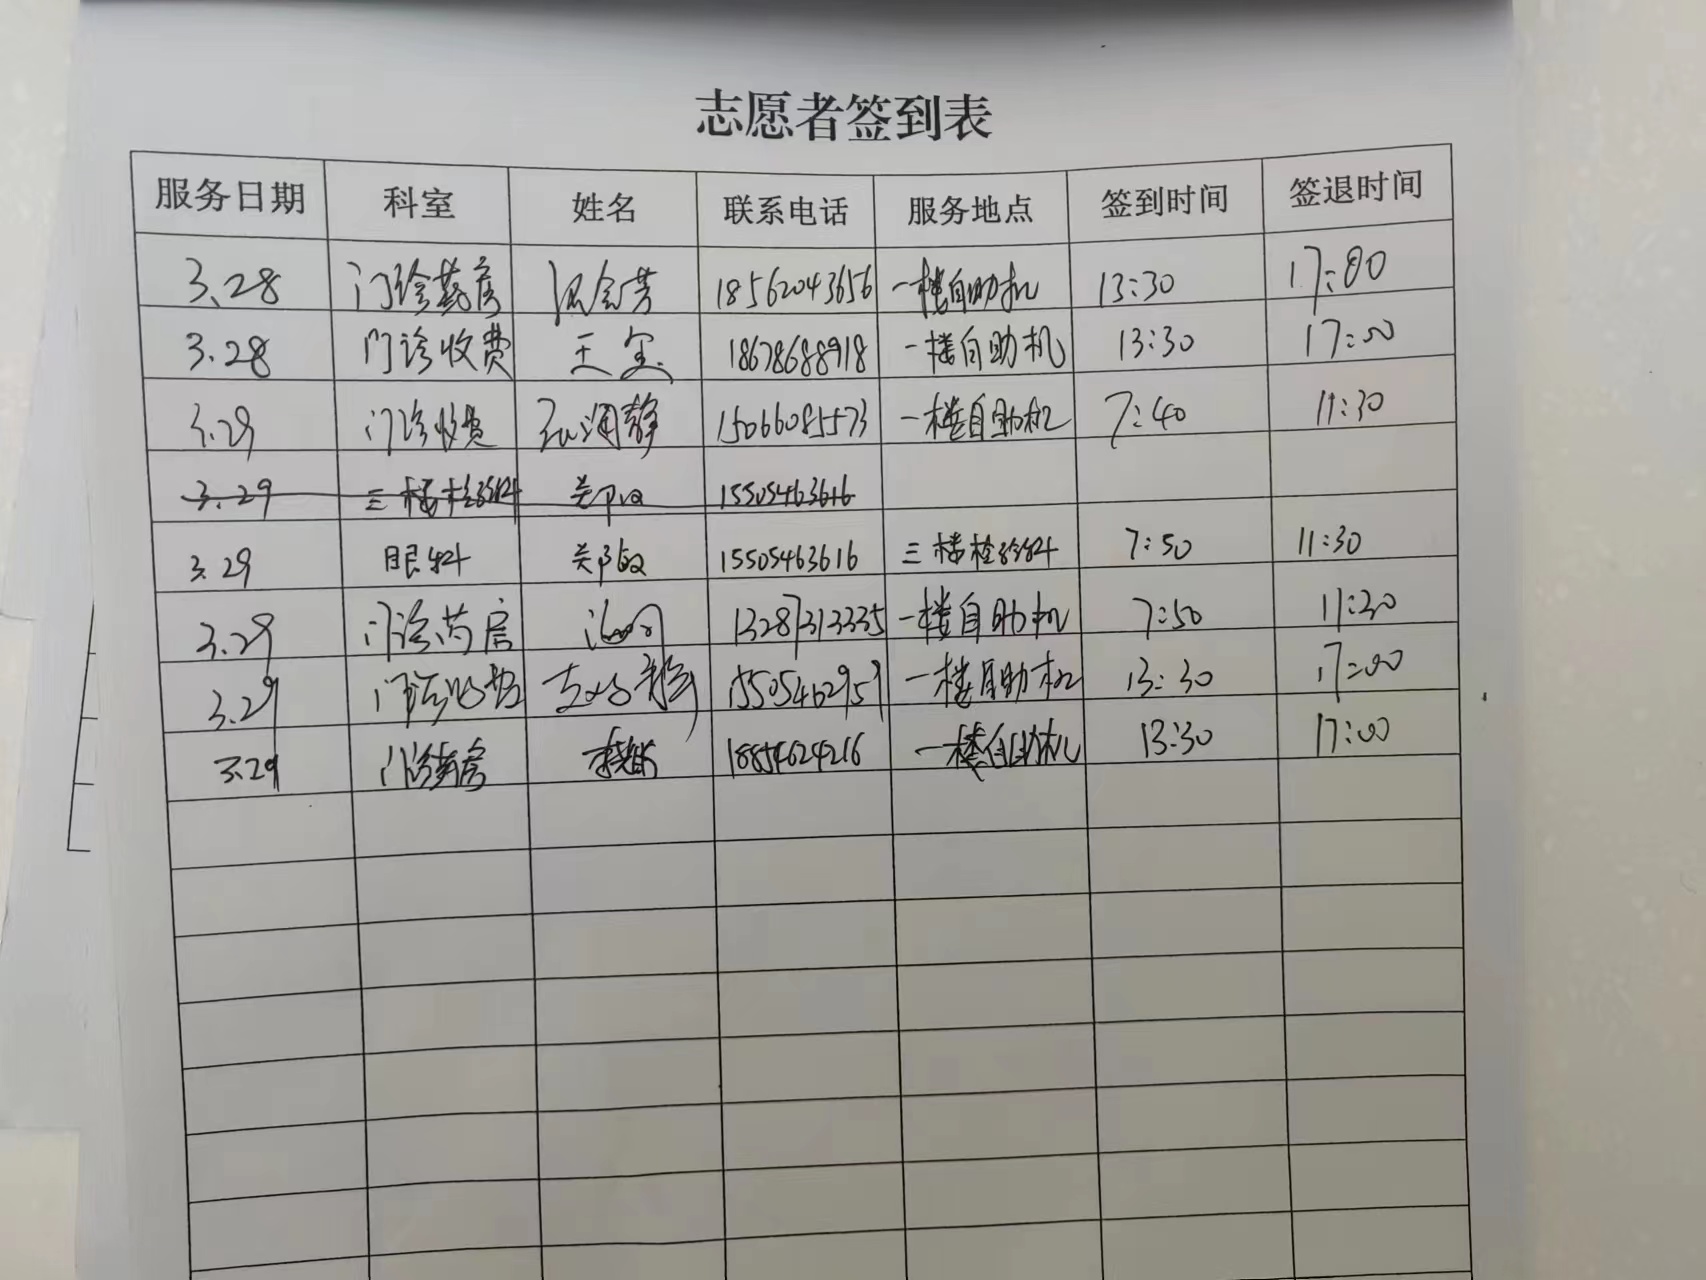 志愿者签到表
服务日期 科室 姓名 联系电话 服务地点 签到时间 签退时间
3.28 门诊药房 18562043656 一楼自助机 13:30 17:00
3.28 门诊收费 王 18678688918 一楼自助机 13:30 17:00
3.29 门诊收费 润静 15066085573 一楼自助机 7:40 11:30
3.29 三楼检验科 郑敏 15505463616
3.29 眼科 郑敏 15505463616 三楼检验科 7:50 11:30
3.29 门诊药房 13287313335 一楼自助机 7:50 11:30
3.29 门诊收费 15505462959 一楼自助机 13:30 17:00
3.29 门诊药房 18854624216 一楼自助机 13:30 17:00